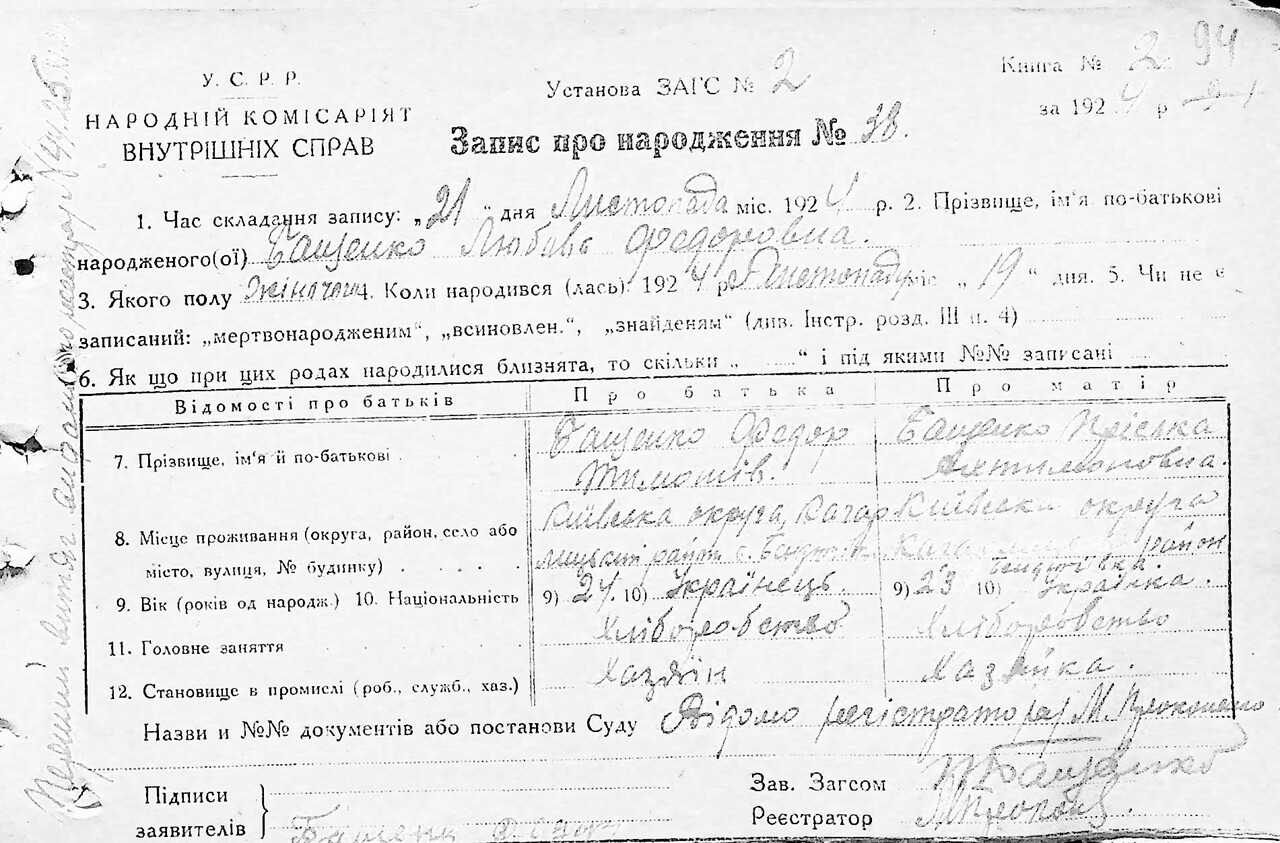 У. С. Р. Р.
НАРОДНІЙ КОМІСАРІЯТ
ВНУТРІШНІХ СПРАВ
Установа ЗАГС № 2
Книга № 2 94
за 1924 р
Запис про народження № 38.
1. Час складання запису: „21“ дня Листопада міс. 1924 р. 2. Прізвище, ім'я по-батькові
народженого(ої) Бащенко Любовь Федоровна.
3. Якого полу Жіночого 4. Коли народився (лась) 1924 р Листопаду міс „19“ дня. 5. Чи не є
записаний: „мертвонародженим“, „всиновлен.“, „знайденям“ (див. Інстр. розд. III п. 4)
6. Як що при цих родах народилися близнята, то скільки „ “ і під якими №№ записані
Відомості про батьків Про батька Про матір
7. Прізвище, ім'я й по-батькові Бащенко Федор Бащенко Пріська
Тимотів. Антимоновна.
8. Місце проживання (округа, район, село або місто, вулиця, № будинку) Київська округа, Кагар Київська округа
лицький район с. район
9. Вік (років од народж.) 10. Національність 9) 24 10) Українець. 9) 23 10) Українка.
11. Головне заняття Хліборобство Хліборобство
12. Становище в промислі (роб., служб., хаз.) Хазяїн Хазяйка.
Назви и №№ документів або постанови Суду Відомо регістратору М.
Підписи
заявителів Бащенк Федир
Зав. Загсом Бащенко
Реєстратор